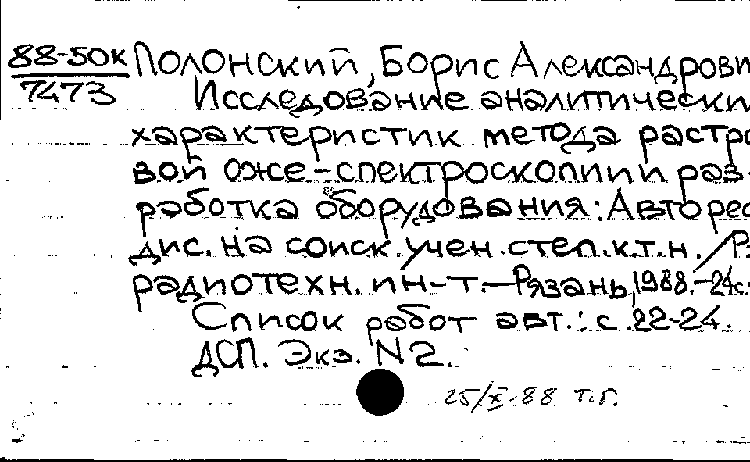 88-50к Полонский, Борис Александрови
7473 Исследование аналитически
характеристик метода растро
вой оже-спектроскопии и раз-
работка оборудования: Авторес
дис. на соиск. учен. степ. к.т.н. / Р
радиотехн. ин-т. - Рязань, 1988. - 24с.
Список работ авт.: с. 22-24.
ДСП. Экз. N2.
25/X-88 т.г.